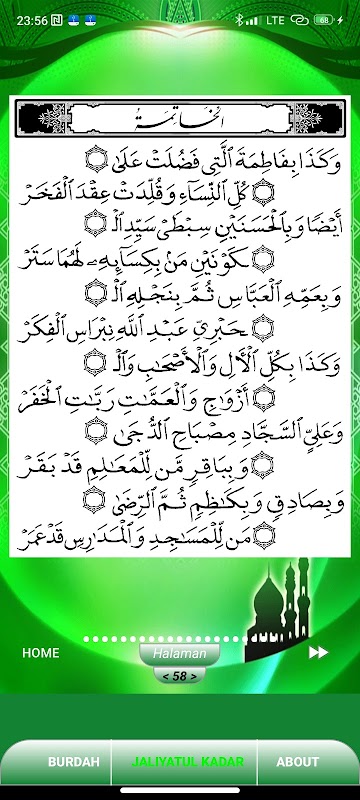 23:56 LTE 68
الخاتمة
وَكَذَا بِفَاطِمَةَ الَّتِي فَضُلَتْ عَلَىٰ
كُلِّ النِّسَاءِ وَقُلِّدَتْ عِقْدَ الْفَخَرْ
أَيْضًا وَبِالْحَسَنَيْنِ سِبْطَيْ سَيِّدِ الْـ
ـكَوْنَيْنِ مَنْ بِكِسَائِهِ لَهُمَا سَتَرْ
وَبِعَمِّهِ الْعَبَّاسِ ثُمَّ بِنَجْلِهِ الْـ
حَبْرِيِّ عَبْدِ اللهِ نِبْرَاسِ الْفِكَرْ
وَكَذَا بِكُلِّ الْآلِ وَالْأَصْحَابِ وَالْـ
أَزْوَاجِ وَالْعَمَّاتِ رَبَّاتِ الْخَفَرْ
وَعَلِيٍّ السَّجَّادِ مِصْبَاحِ الدُّجَىٰ
وَبِبَاقِرٍ مَّنْ لِلْمَعَالِمِ قَدْ بَقَرْ
وَبِصَادِقٍ وَبِكَاظِمٍ ثُمَّ الرِّضَىٰ
مَنْ لِلْمَسَاجِدِ وَالْمَدَارِسِ قَدْ عَمَرْ
HOME Halaman
< 58 >
BURDAH JALIYATUL KADAR ABOUT